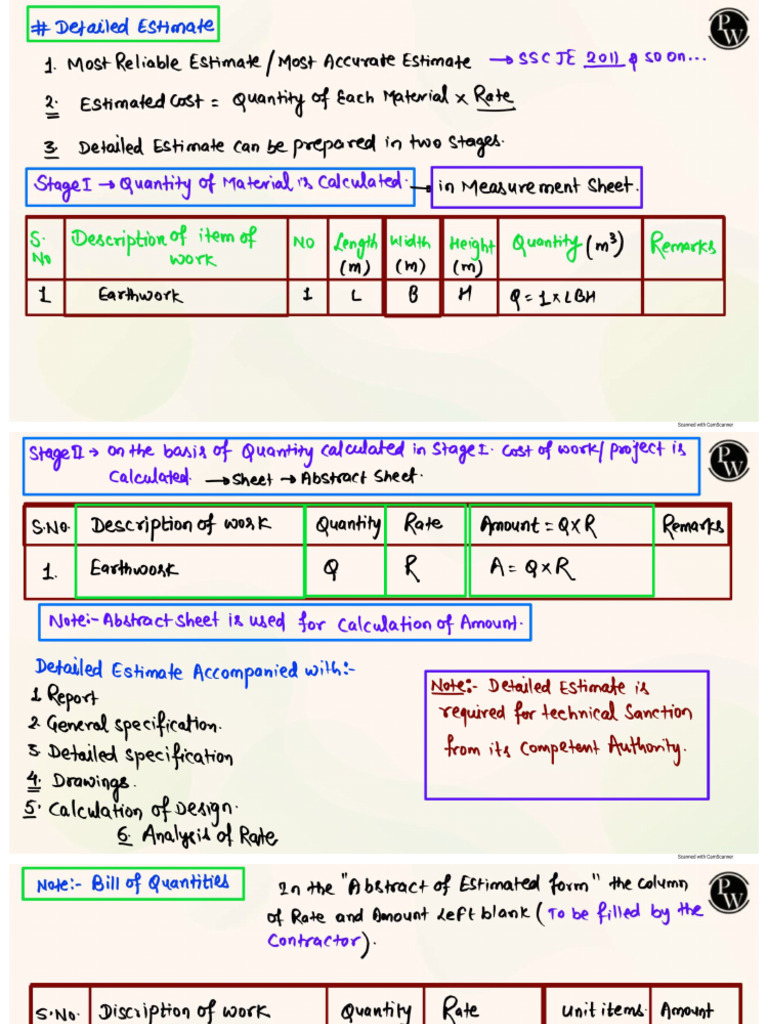 # Detailed Estimate
PW
1. Most Reliable Estimate / Most Accurate Estimate → SSC JE 2011 & so on...
2. Estimated Cost = Quantity of Each Material × Rate
3. Detailed Estimate can be prepared in two stages.
Stage I → Quantity of Material is Calculated. → in Measurement Sheet.
S. No Description of item of work NO Length (m) Width (m) Height (m) Quantity (m³) Remarks
1 Earthwork 1 L B H Q = 1 × LBH
Scanned with CamScanner
Stage II → on the basis of Quantity calculated in Stage I. Cost of work / project is
Calculated. → Sheet → Abstract Sheet.
PW
S.No. Description of work Quantity Rate Amount = Q×R Remarks
1. Earthwork Q R A = Q×R
Note:- Abstract Sheet is used for Calculation of Amount.
Detailed Estimate Accompanied with:-
1. Report
2. General specification.
3. Detailed specification
4. Drawings.
5. Calculation of Design.
6. Analysis of Rate
Note:- Detailed Estimate is
required for technical Sanction
from its Competent Authority.
Scanned with CamScanner
Note:- Bill of Quantities
In the "Abstract of Estimated form" the column
of Rate and Amount Left blank (To be filled by the
Contractor).
PW
S.No. Discription of work Quantity Rate Unit items. Amount